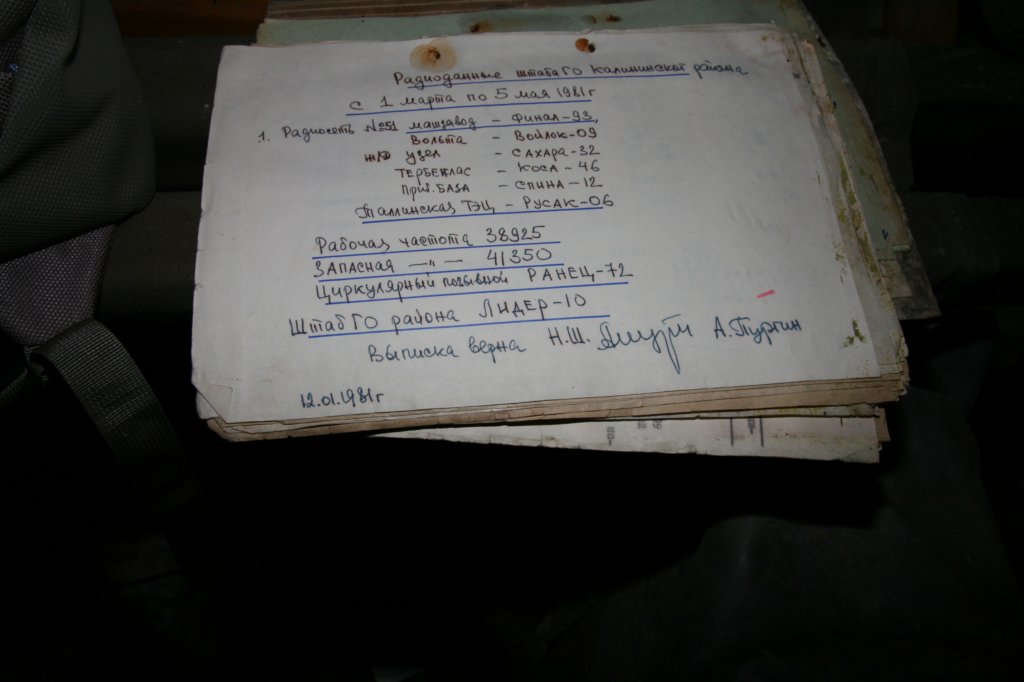 Радиоданные штаба ГО Калининской района
с 1 марта по 5 мая 1981г
1. Радиосеть №51 машзавод – Финал-93,
Вольта – Войлок-09
ж/д узел – САХАРА-32
ТЕРБЕКЛАС – КОСА-46
Приб. БАЗА – СПИНА-12
Таллинская ТЭЦ – РУСАК-06
Рабочая частота 38925
ЗАПАСНАЯ —"— 41350
Циркулярный позывной РАНЕЦ-72
Штаб ГО района ЛИДЕР-10
Выписка верна Н.Ш. А.Тургин
12.01.1981г